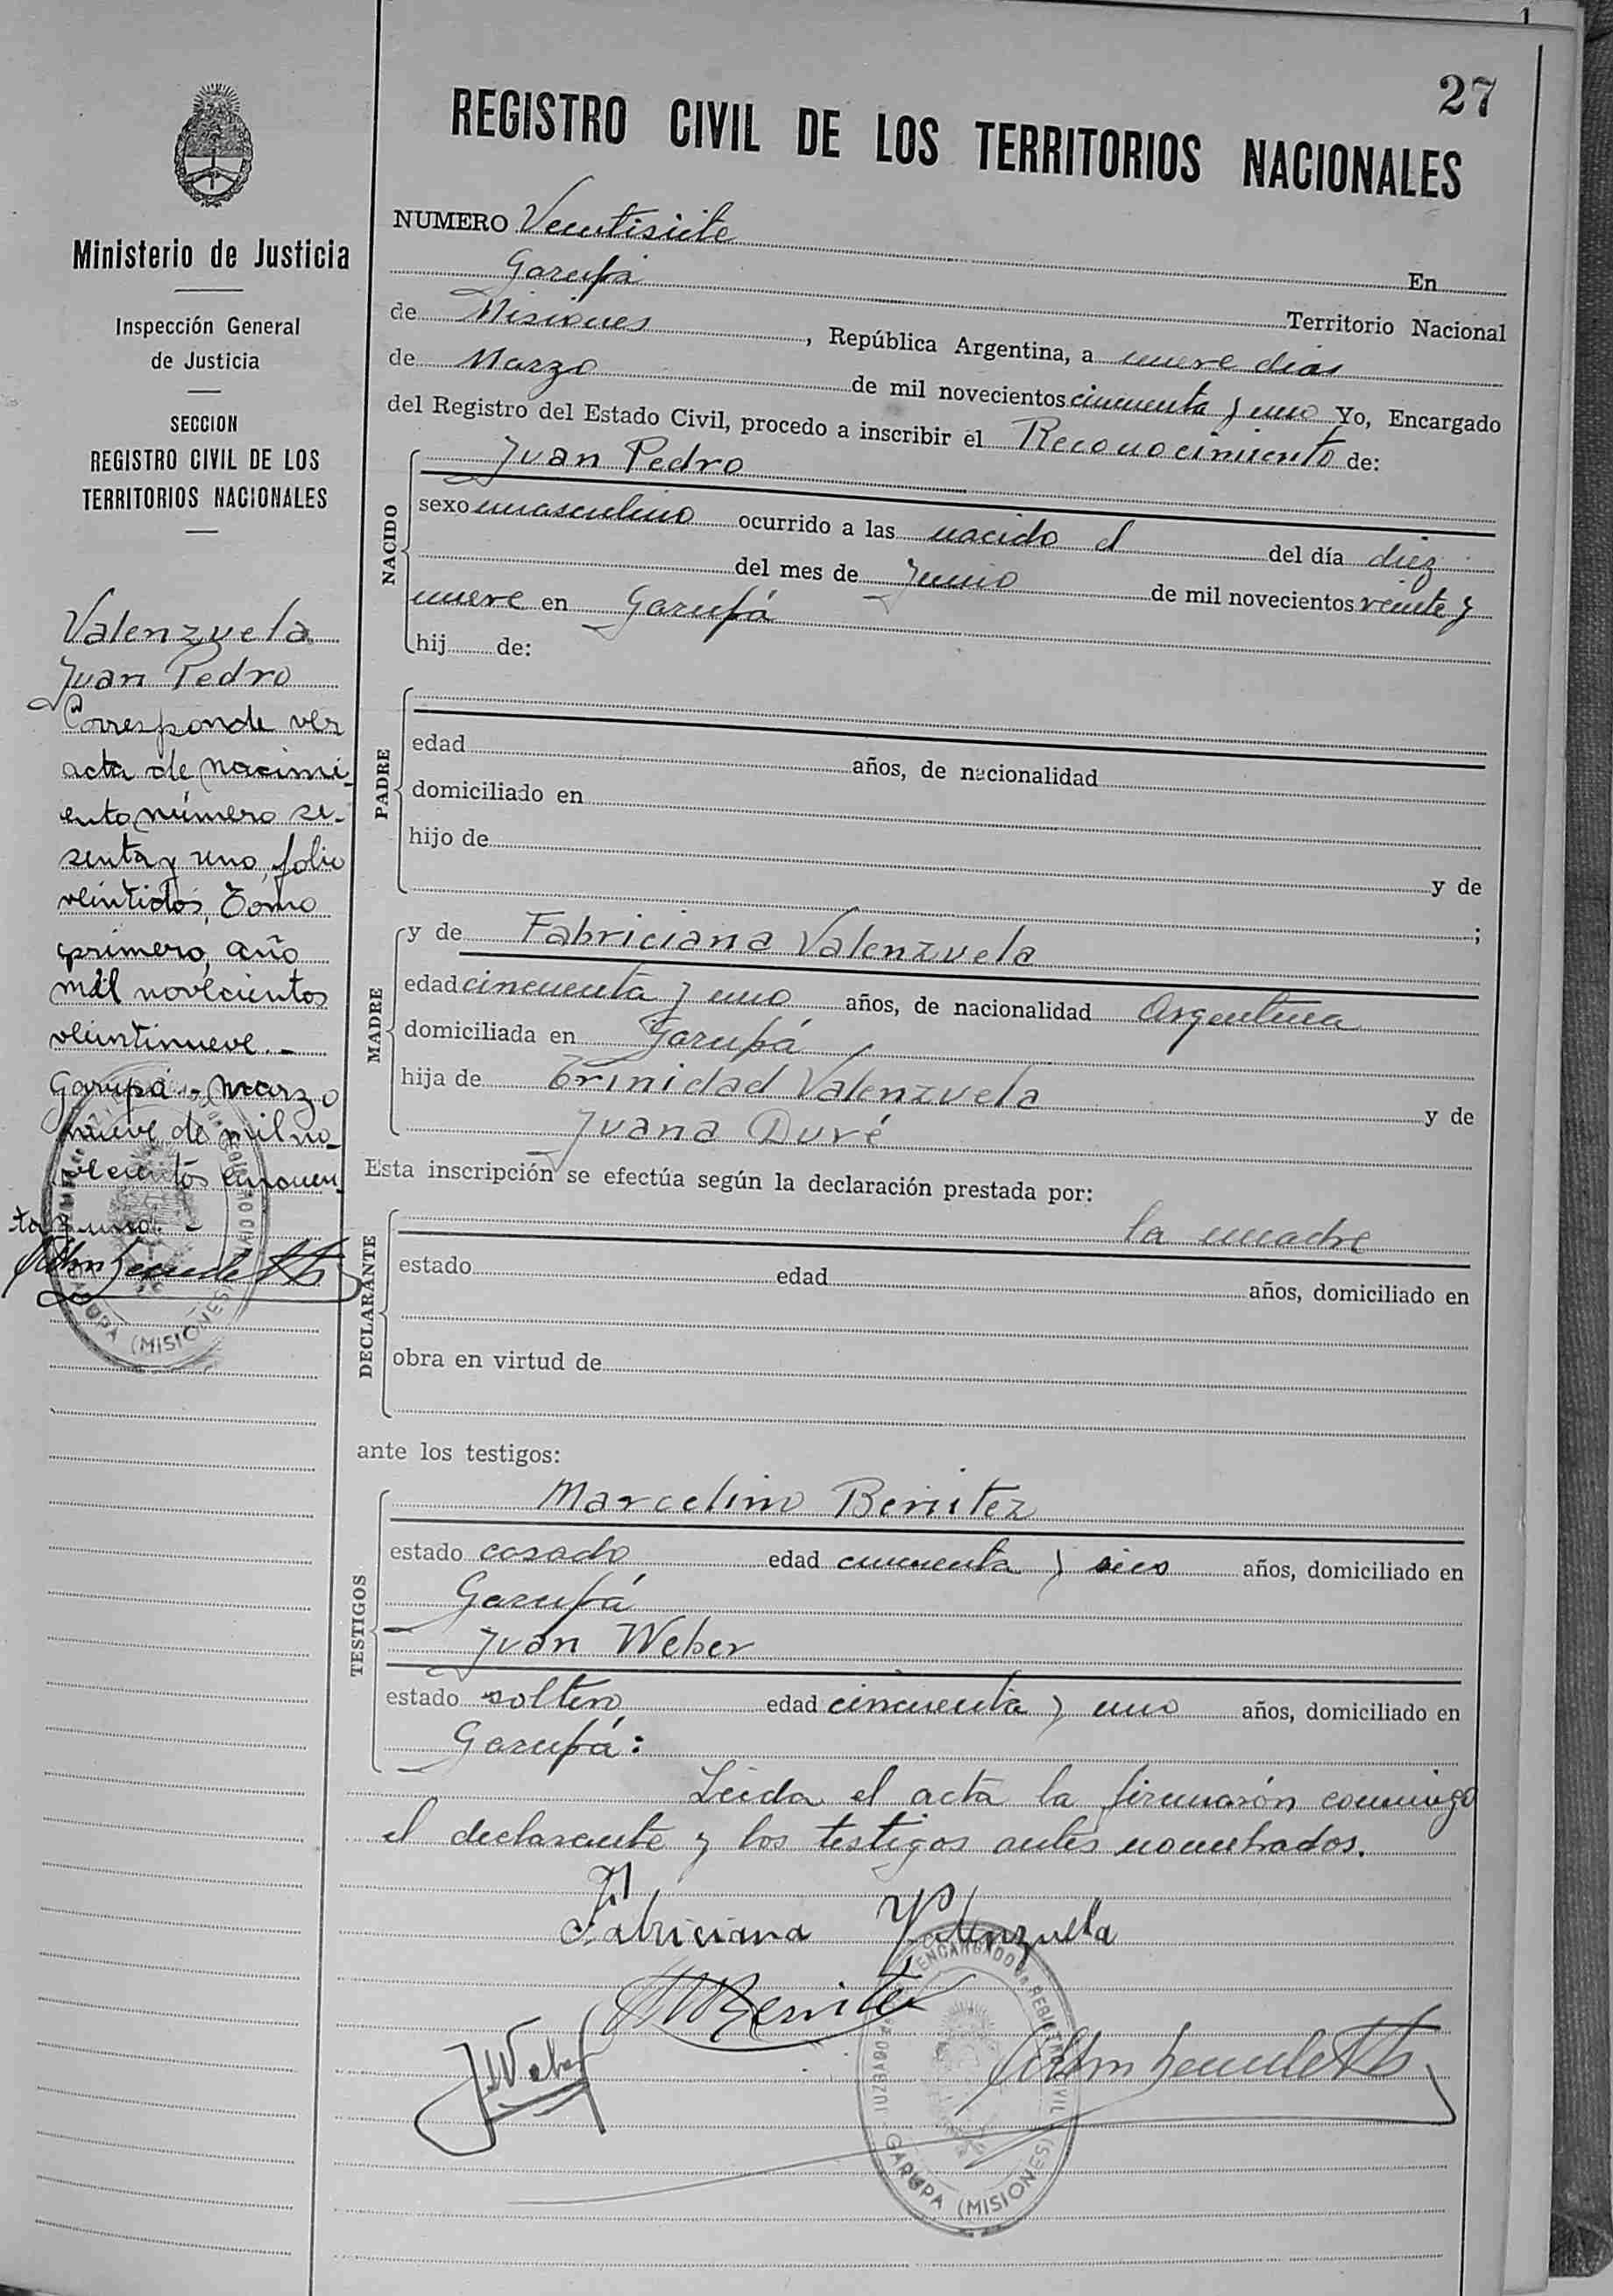 27
REGISTRO CIVIL DE LOS TERRITORIOS NACIONALES
Ministerio de Justicia
Inspección General
de Justicia
SECCION
REGISTRO CIVIL DE LOS
TERRITORIOS NACIONALES
Valenzuela
Juan Pedro
Corresponde ver
acta de nacimi-
ento número se-
senta y uno, folio
veintidos, Tomo
primero, año
mil novecientos
veintinueve.-
Garupá, marzo
nueve de mil no-
vecientos cincuen-
ta y uno.-
GARUPA (MISIONES)
NUMERO Veintisiete
En
Garupá Territorio Nacional
de Misiones, República Argentina, a nueve dias
de Marzo de mil novecientos cincuenta y uno Yo, Encargado
del Registro del Estado Civil, procedo a inscribir el Reconocimiento de:
NACIDO
Juan Pedro
sexo masculino ocurrido a las nacido el del día diez
del mes de Junio de mil novecientos veinte y
nueve en Garupá
hij de:
PADRE
edad años, de nacionalidad
domiciliado en
hijo de
y de
;
MADRE
y de Fabriciana Valenzuela
edad cincuenta y uno años, de nacionalidad Argentina
domiciliada en Garupá
hija de Trinidad Valenzuela y de
Juana Duré
Esta inscripción se efectúa según la declaración prestada por:
DECLARANTE
la madre
estado edad años, domiciliado en
obra en virtud de
ante los testigos:
TESTIGOS
Marcelino Benitez
estado casado edad cincuenta y años, domiciliado en
Garupá
Juan Weber
estado soltero edad cincuenta y uno años, domiciliado en
Garupá:
Leida el acta la firmarón conmigo
el declarante y los testigos antes nombrados.
Fabriciana Valenzuela
MBenitez
JWeber
JUZGADO ENCARGADO REGISTRO CIVIL
GARUPA (MISIONES)